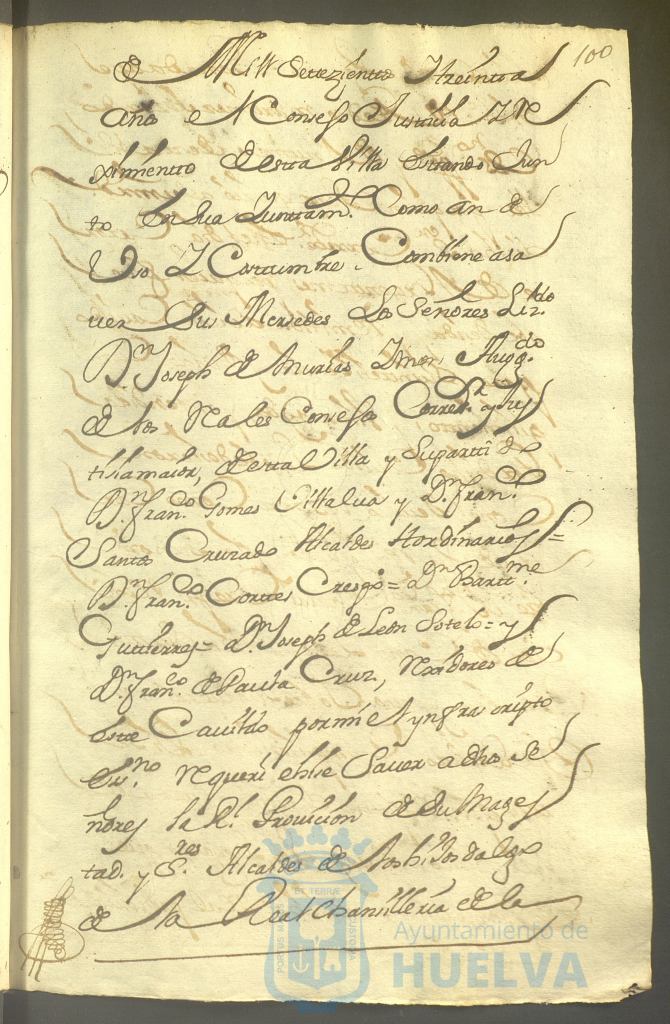 100
de Mill Setezientos Treinta
años el Consejo Justicia y Re
ximiento de esta Villa estando Jun
to en su Juntam.to Como an de
Uso y Costumbre. Combiene a sa
uer Sus Mersedes Los Señores Liz.do
D.n Joseph de Abog.do
de los Rales Consejos Correx.r y Jus
tisia maior, de esta Villa y Su partido
D.n Fran.co Gomes Villalua y D.n Fran.co
Santos Cruzado Alcaldes Hordinarios =
D.n Fran.co Cortes Crespo = D.n Bartt.me
Gutierres = D.n Joseph de Leon Sotelo = y
D.n Fran.co de Pauta Cruz, Rexidores de
este Cauildo por mi el ynfra scripto
Es.no Requeri e hise Sauer a dhos Se
ñores la R.l Prouicion de Su Mages
tad. y S.res Alcaldes de los hijosdalgo
de la Real Chansilleria de la
PORTUS MARIS ET TERRE CUSTODIA
Ayuntamiento de
HUELVA